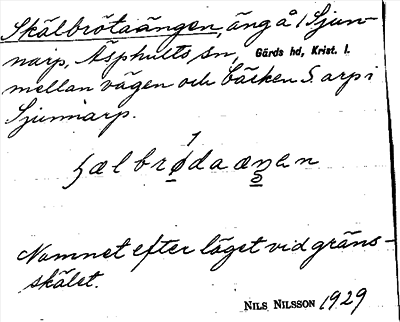 Skälbrötaängen, äng å 1 Sjun-
narp, Äsphults sn, Gärds hd, Krist. l.
mellan vägen och bäcken S. arp i
Sjunnarp.
1
ɧælbrødaæŋan
Namnet efter läget vid gräns-
skälet.
NILS NILSSON 1929